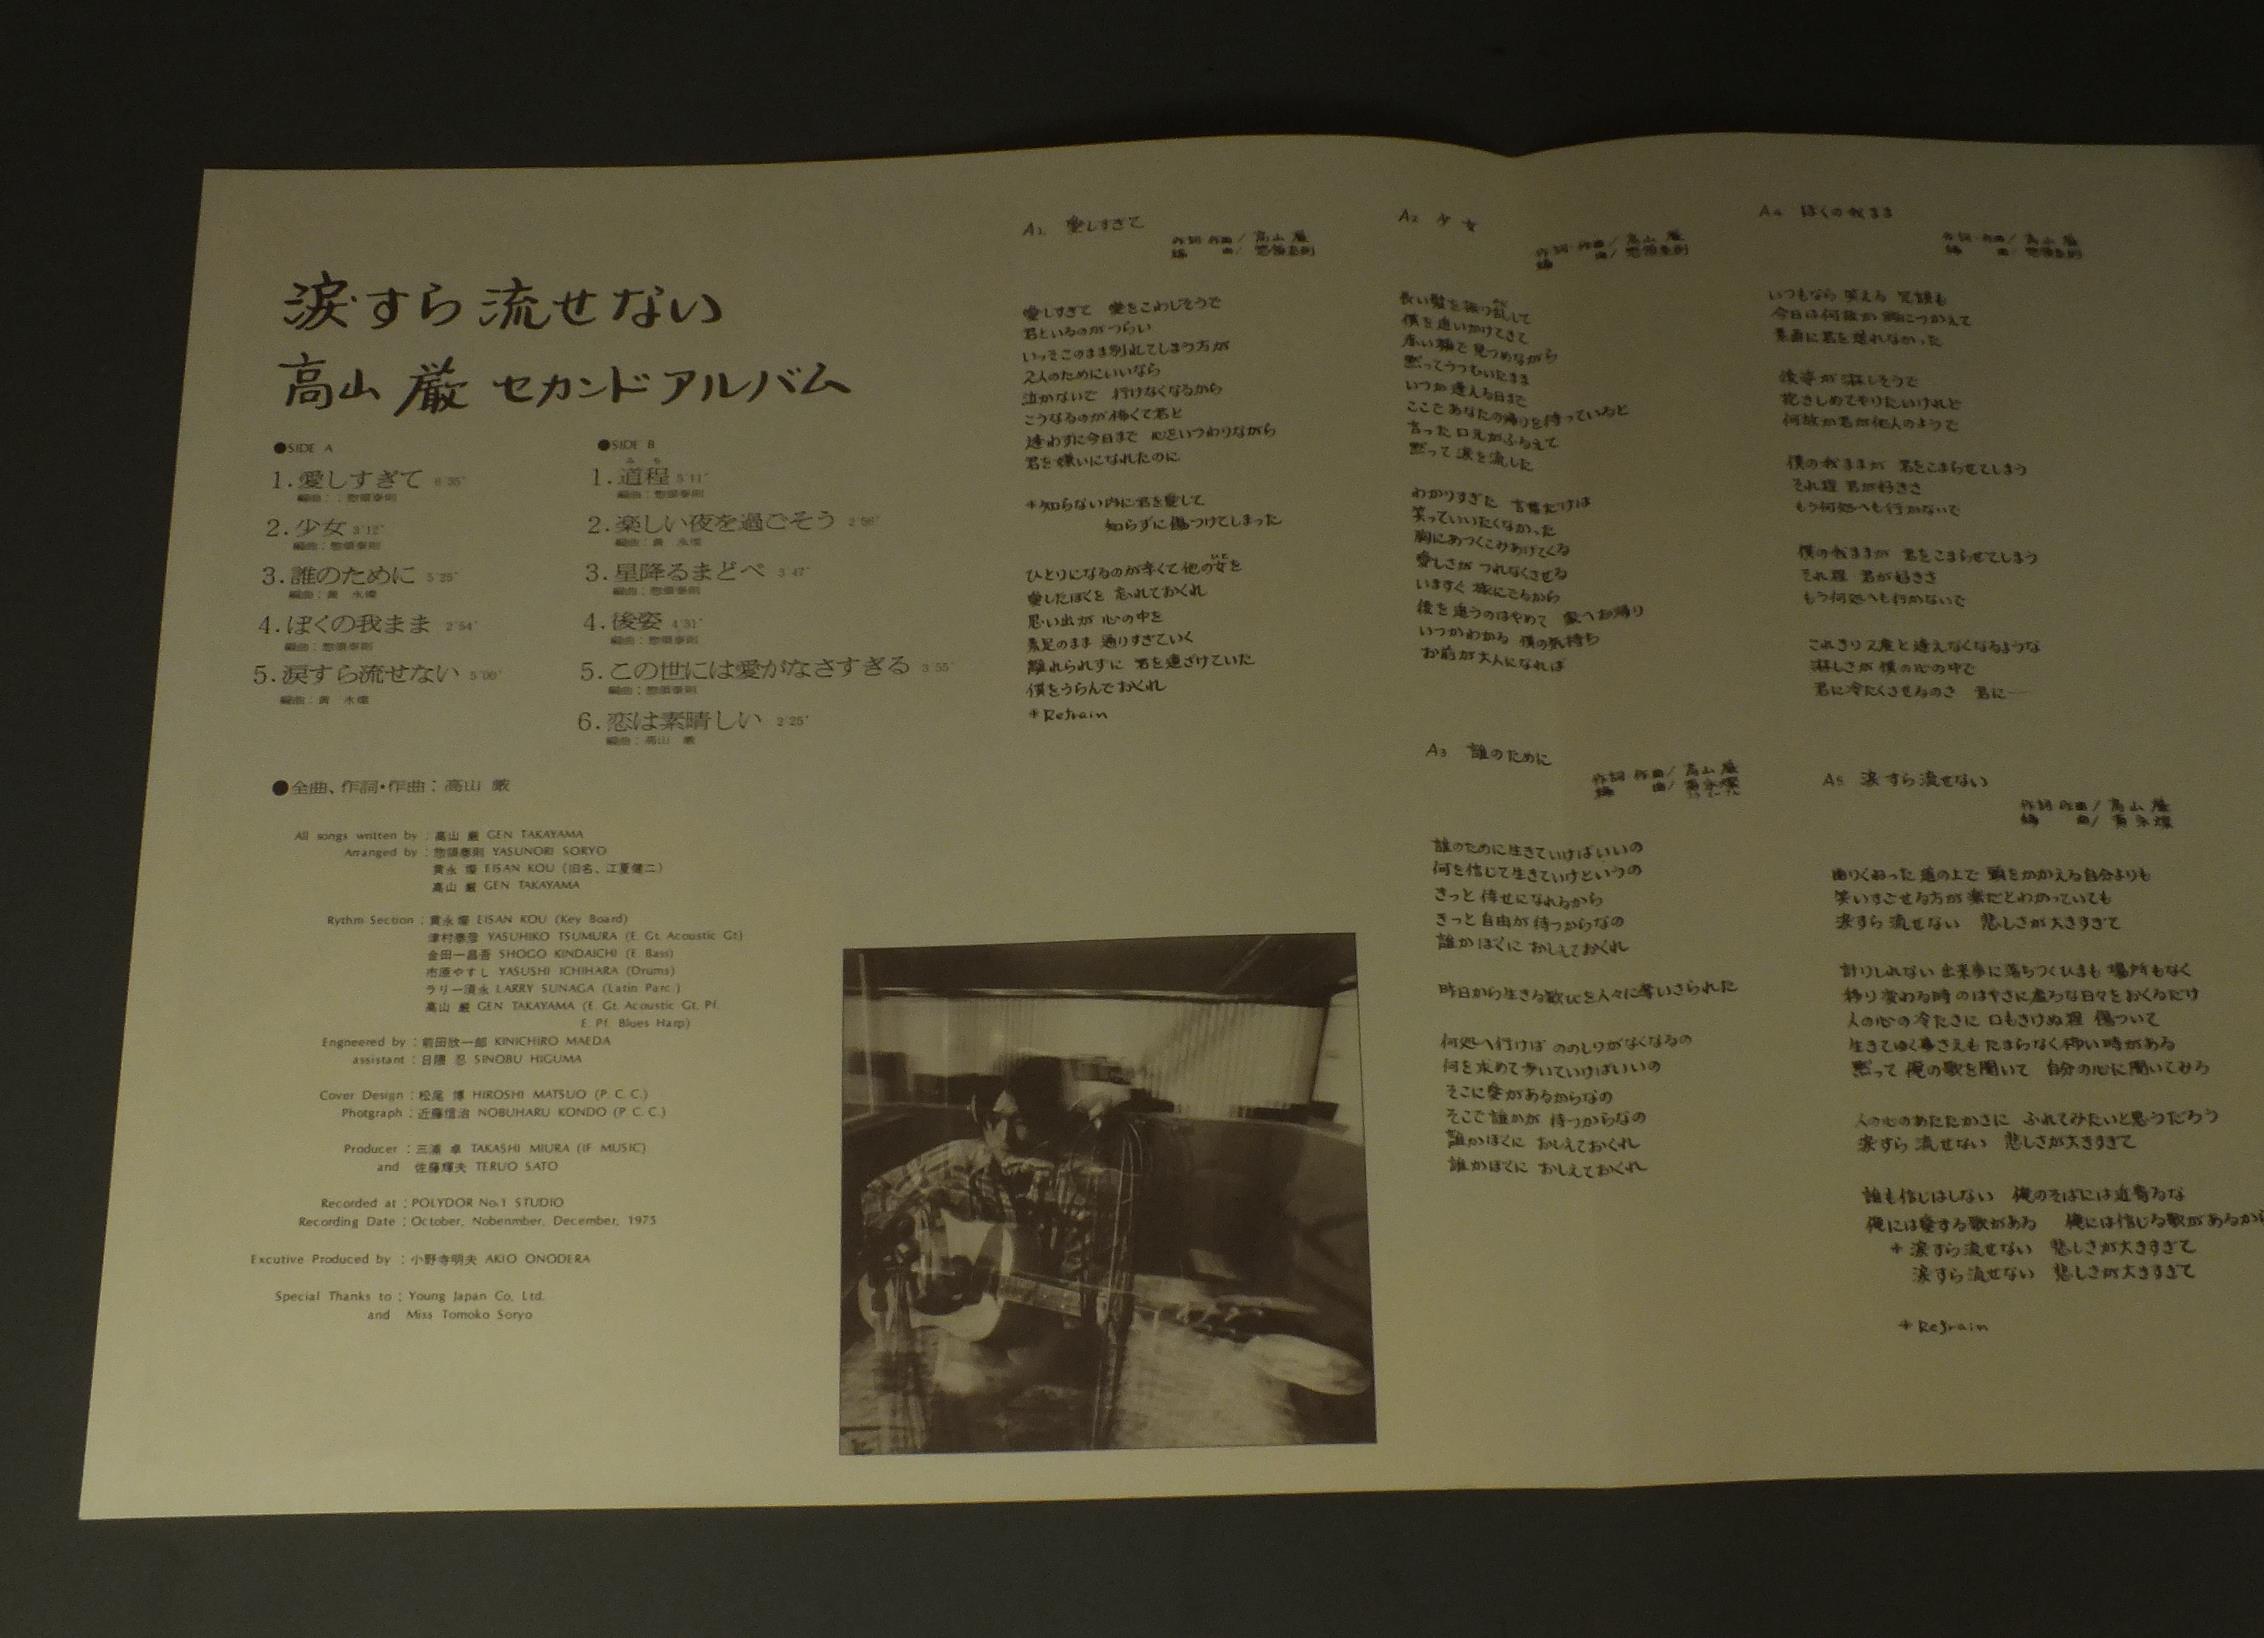 涙すら流せない
高山 厳 セカンドアルバム
●SIDE A
1.愛しすぎて 6'35"
編曲:惣領泰則
2.少女 3'12"
編曲:惣領泰則
3.誰のために 5'25"
編曲:黄 永燦
4.ぼくの我まま 2'54"
編曲:惣領泰則
5.涙すら流せない 5'00"
編曲:黄 永燦
●SIDE B
みち
1.道程 5'11"
編曲:惣領泰則
2.楽しい夜を過ごそう 2'56"
編曲:黄 永燦
3.星降るまどべ 3'47"
編曲:惣領泰則
4.後姿 4'31"
編曲:惣領泰則
5.この世には愛がなさすぎる 3'55"
編曲:惣領泰則
6.恋は素晴しい 2'25"
編曲:高山 厳
●全曲、作詞・作曲:高山 厳
All songs written by:高山 厳 GEN TAKAYAMA
Arranged by:惣領泰則 YASUNORI SORYO
黄永 燦 EISAN KOU (旧名、江夏健二)
高山 厳 GEN TAKAYAMA
Rythm Section:黄永燦 EISAN KOU (Key Board)
津村泰彦 YASUHIKO TSUMURA (E. Gt. Acoustic Gt)
金田一昌吾 SHOGO KINDAICHI (E. Bass)
市原やすし YASUSHI ICHIHARA (Drums)
ラリー須永 LARRY SUNAGA (Latin Parc.)
高山 厳 GEN TAKAYAMA (E. Gt. Acoustic Gt. Pf.
E. Pf. Blues Harp)
Engneered by:前田欣一郎 KINICHIRO MAEDA
assistant:日隈 忍 SINOBU HIGUMA
Cover Design:松尾 博 HIROSHI MATSUO (P. C. C.)
Photgraph:近藤信治 NOBUHARU KONDO (P. C. C.)
Producer:三浦 卓 TAKASHI MIURA (IF MUSIC)
and 佐藤輝夫 TERUO SATO
Recorded at:POLYDOR No.1 STUDIO
Recording Date:October, Nobenmber, December, 1975
Excutive Produced by:小野寺明夫 AKIO ONODERA
Special Thanks to:Young Japan Co, Ltd.
and Miss Tomoko Soryo
A1. 愛しすぎて
作詞 作曲/高山 厳
編 曲/惣領泰則
愛しすぎて 愛をこわしそうで
君といるのがつらい
いっそこのまま別れてしまう方が
2人のためにいいなら
泣かないで 行けなくなるから
こうなるのが怖くて君と
逢わずに今日まで 心をいつわりながら
君を嫌いになれたのに
+知らない内に君を愛して
知らずに傷つけてしまった
ひとりになるのが辛くて他の女を
愛したぼくを 忘れておくれ
思い出が 心の中を
素足のまま 通りすぎていく
離れられずに 君を遠ざけていた
僕をうらんでおくれ
+Refrain
A2 少女
作詞 作曲/高山 厳
編 曲/惣領泰則
長い髪を振り乱して
僕を追いかけてきて
赤い頬で 見つめながら
黙ってうつむいたまま
いつか逢える日まで
ここであなたの帰りを待っていると
言った口元がふるえて
黙って涙を流した
わかりすぎた 言葉だけは
笑っていいたくなかった
胸にあつくこみあげてくる
愛しさが つれなくさせる
いますぐ旅にでるから
後を追うのはやめて 家へお帰り
いつかわかる 僕の気持ち
お前が大人になれば
A3 誰のために
作詞 作曲/高山 厳
編 曲/黄永燦
誰のために生きていけばいいの
何を信じて生きていけというの
きっと倖せになれるから
きっと自由が待つからなの
誰かぼくに おしえておくれ
昨日から生きる歓びを人々に奪いさられた
何処へ行けば ののしりがなくなるの
何を求めて歩いていけばいいの
そこに愛があるからなの
そこで誰かが 待つからなの
誰かぼくに おしえておくれ
誰かぼくに おしえておくれ
A4 ぼくの我まま
作詞 作曲/高山 厳
編 曲/惣領泰則
いつもなら 笑える 冗談も
今日は何故か 胸につかえて
素直に君を送れなかった
後姿が 淋しそうで
抱きしめてやりたいけれど
何故か君が他人のようで
僕の我ままが 君をこまらせてしまう
それ程 君が好きさ
もう何処へも行かないで
僕の我ままが 君をこまらせてしまう
それ程 君が好きさ
もう何処へも行かないで
これきり2度と逢えなくなるような
淋しさが 僕の心の中で
君に冷たくさせるのさ 君に―
A5 涙すら流せない
作詞 作曲/高山 厳
編 曲/黄永燦
曲りくねった道の上で 頭をかかえる自分よりも
笑いすごせる方が 楽だとわかっていても
涙すら流せない 悲しさが大きすぎて
計りしれない出来事に 落ちつくひまも 場所もなく
移り変わる時のはやさに虚ろな日々をおくるだけ
人の心の冷たさに 口もきけぬ程 傷ついて
生きてゆく事さえも たまらなく怖い時がある
黙って 俺の歌を聞いて 自分の心に聞いてみろ
人の心のあたたかさに ふれてみたいと思うだろう
涙すら流せない 悲しさが大きすぎて
誰も信じはしない 俺のそばには近寄るな
俺には愛する歌がある 俺には信じる歌があるから
+涙すら流せない 悲しさが大きすぎて
涙すら流せない 悲しさが大きすぎて
+Refrain